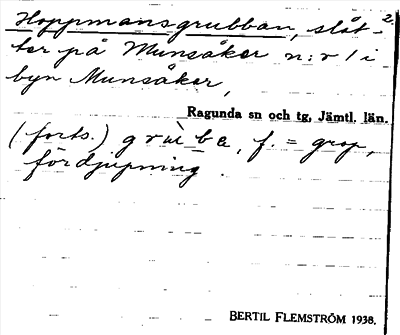 2.
Hoppmansgrubban, slåt-
ter på Munsåker n:r 1 i
byn Munsåker,
Ragunda sn och tg, Jämtl. län.
(forts.) grùba, f. = grop,
fördjupning.
BERTIL FLEMSTRÖM 1938.